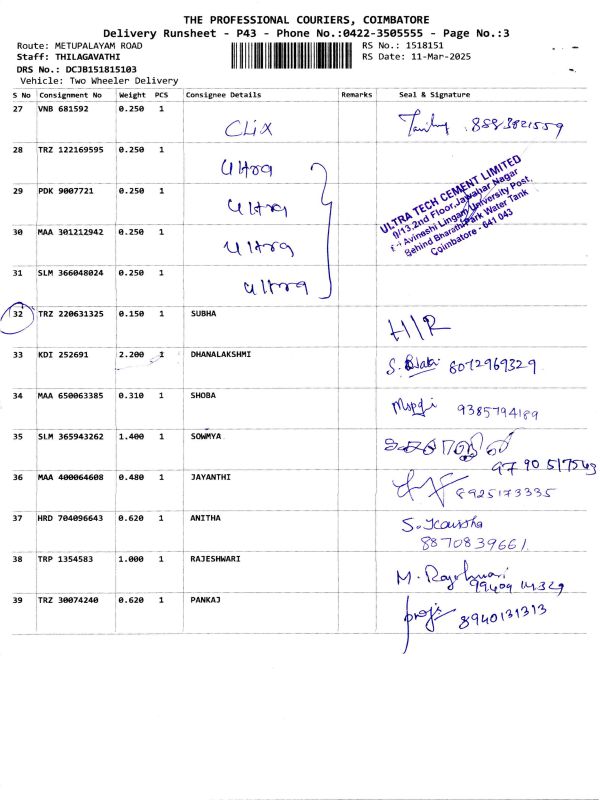 THE PROFESSIONAL COURIERS, COIMBATORE
Delivery Runsheet - P43 - Phone No.:0422-3505555 - Page No.:3
Route: METUPALAYAM ROAD RS No.: 1518151
Staff: THILAGAVATHI RS Date: 11-Mar-2025
DRS No.: DCJB151815103
Vehicle: Two Wheeler Delivery
S No Consignment No Weight PCS Consignee Details Remarks Seal & Signature
27 VNB 681592 0.250 1 CLiX
28 TRZ 122169595 0.250 1 Ultra
29 PDK 9007721 0.250 1 Ultra
30 MAA 301212942 0.250 1 Ultra
31 SLM 366048024 0.250 1 Ultra
ULTRA TECH CEMENT LIMITED
9/13,2nd Floor,Jawahar Nagar
Avinashi Lingam University Post,
Behind Bharathi Park Water Tank
Coimbatore - 641 043
32 TRZ 220631325 0.150 1 SUBHA H/R
33 KDI 252691 2.200 1 DHANALAKSHMI 8072969329
34 MAA 650063385 0.310 1 SHOBA 9385794189
35 SLM 365943262 1.400 1 SOWMYA
97 90 517543
36 MAA 400064608 0.480 1 JAYANTHI 8925173335
37 HRD 704096643 0.620 1 ANITHA
8870839661
38 TRP 1354583 1.000 1 RAJESHWARI M. Rajeshwari
39 TRZ 30074240 0.620 1 PANKAJ 8940131313